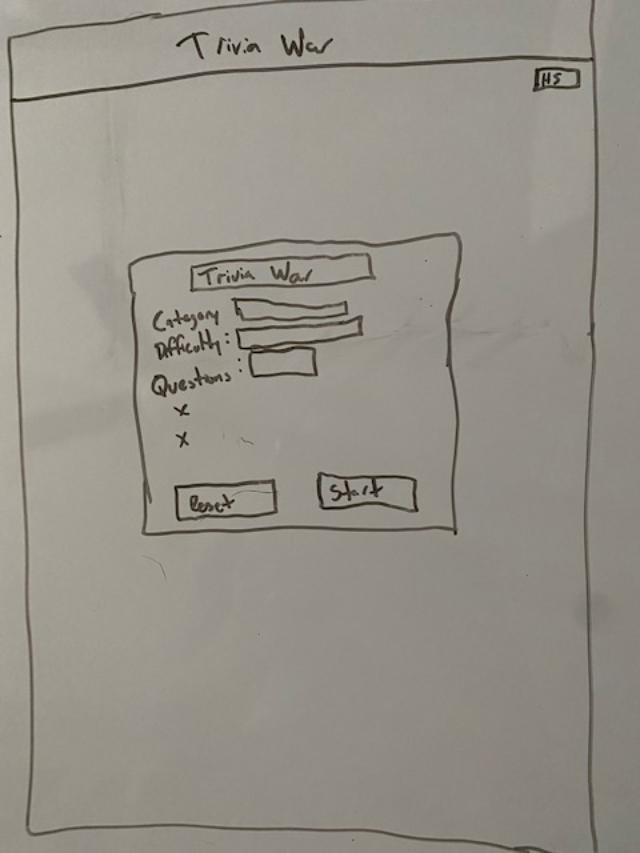 Trivia War
HS
Trivia War
Category
Difficulty:
Questions:
x
x
Reset Start